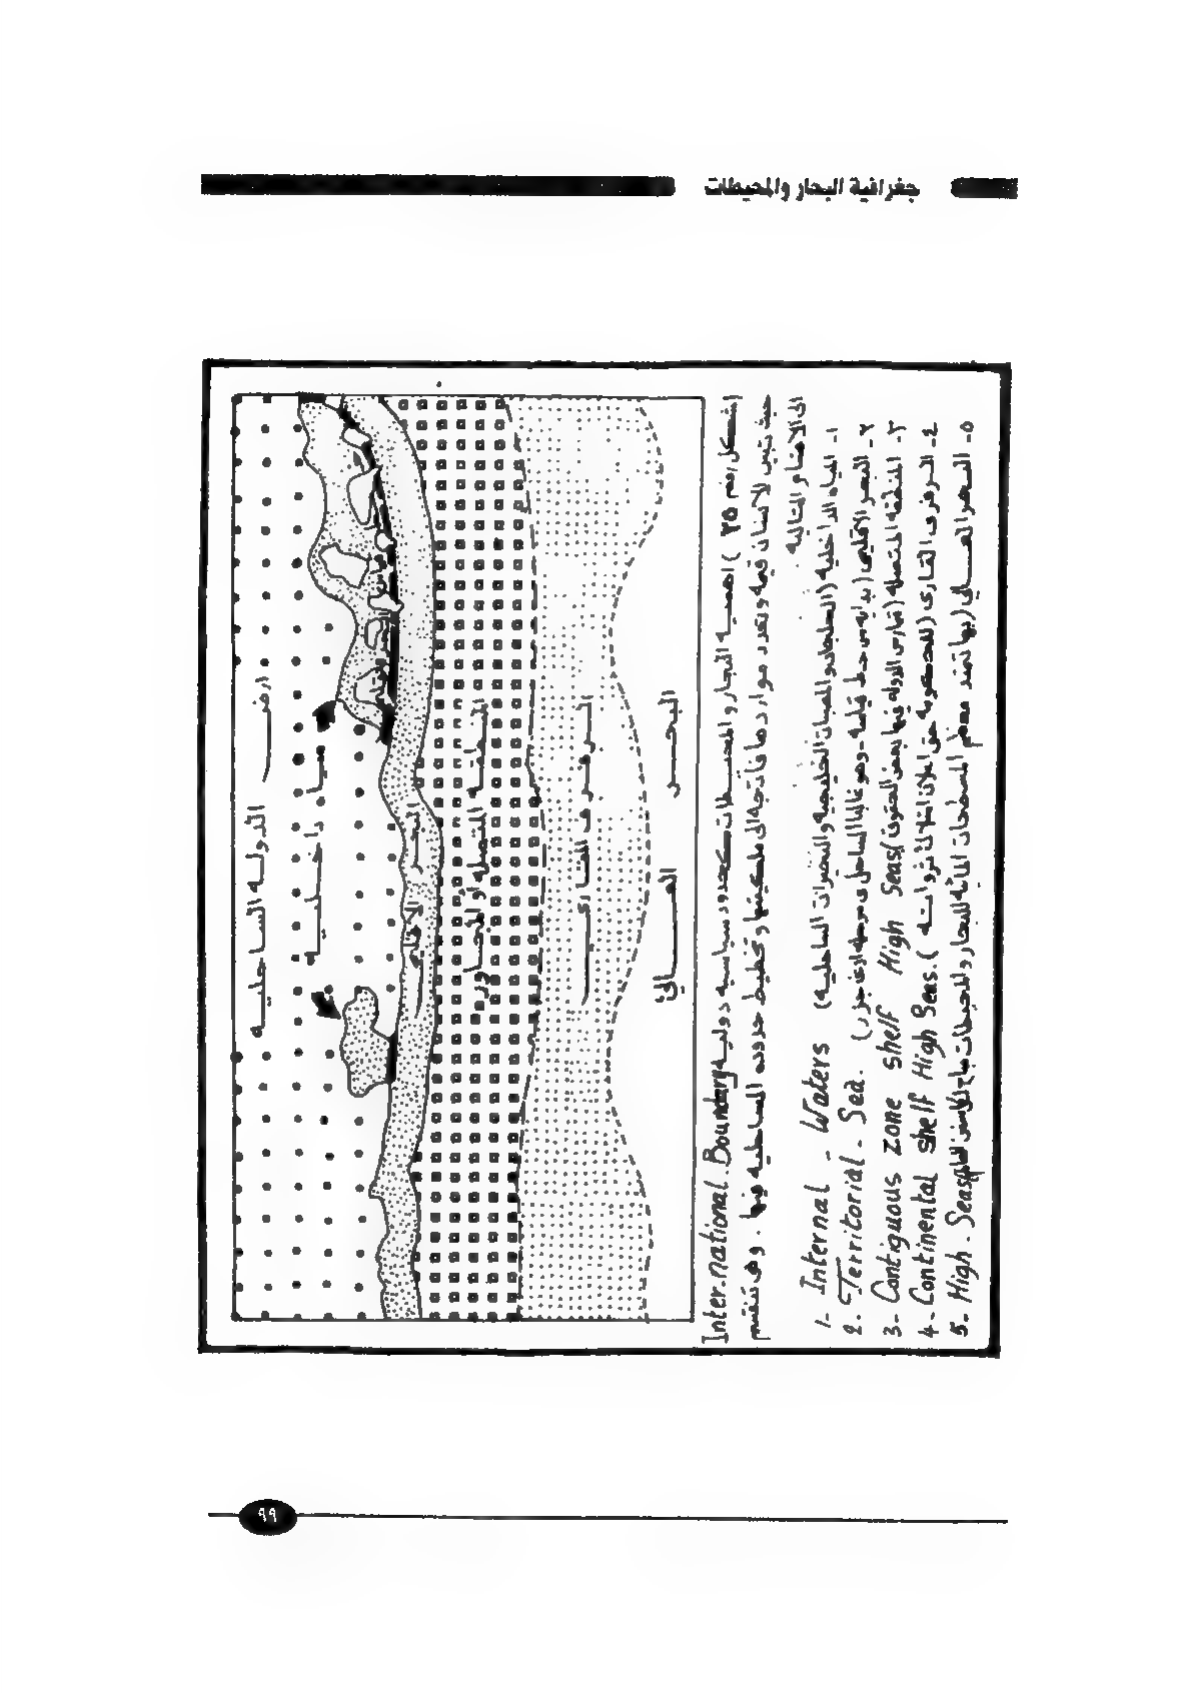 جغرافية البحار والمحيطات
أرض الدولة الساحلية
مياه داخلية
البحر الاقليمى
المنطقه المتصله أو المجاوره
الرفرف القارى
البحر العالى
(شكل رقم ٢٥) اهمية البحار والمحيطات كحدود سياسيه دوليه Inter.national.Boundary
حيث تبين للانسان قيمه وتعدد مواردها فاتجه الى ملكيتها وتخطيط حدوده الساحليه فيها. وهى تنقسم
الى الاقسام التالية
١- المياه الداخليه (الخلجان والمصبات الخليجيه والبحيرات الساحليه) 1- Internal - Waters
٢- البحر الاقليمى (بدايه من خط قياسه - وهو غالبا الساحل فى مرحلة ادنى جزر) 2- Territorial - Sea.
٣- المنطقه المتصله (تمارس الدوله فيها بعض الحقوق) 3- Contiguous zone shelf High Seas
٤- الرفرف القارى (للدوله حق استغلال ثرواته) 4- Continental shelf High Seas.
٥- البحر العالى (بها تمتد معظم المسطحات المائيه للبحار والمحيطات 5- High - Seas
٩٩